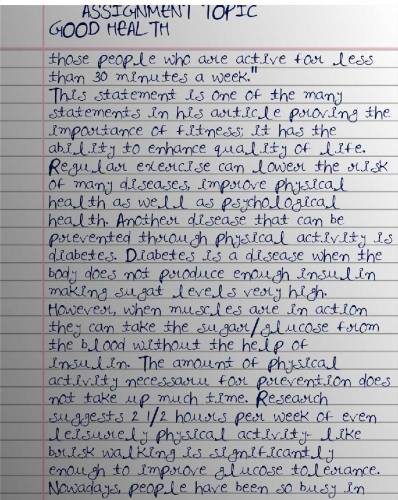 ASSIGNMENT TOPIC
GOOD HEALTH
those people who are active for less
than 30 minutes a week."
This statement is one of the many
statements in his article proving the
importance of fitness; it has the
ability to enhance quality of life.
Regular exercise can lower the risk
of many diseases, improve physical
health as well as psychological
health. Another disease that can be
prevented through physical activity is
diabetes. Diabetes is a disease when the
body does not produce enough insulin
making sugat levels very high.
However, when muscles are in action
they can take the sugar/glucose from
the blood without the help of
insulin. The amount of physical
activity necessaru for prevention does
not take up much time. Research
suggests 2 1/2 hours per week of even
leisurely physical activity- like
brisk walking is significantly
enough to improve glucose tolerance.
Nowadays, people have been so busy in